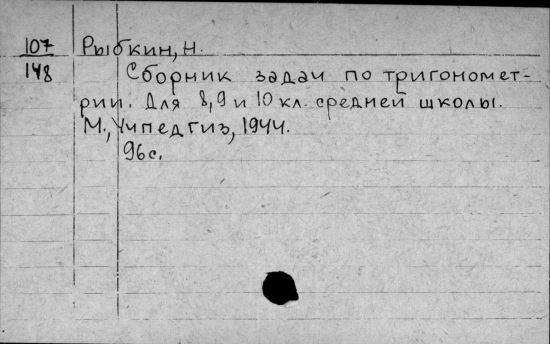 107 Рыбкин, Н.
148 Сборник задач по тригономет-
рии. Для 8, 9 и 10 кл. средней школы.
М., Учпедгиз, 1944.
96 с.